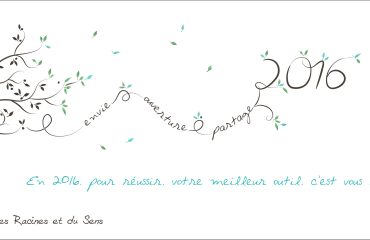 2016
envie ouverture partage
En 2016, pour réussir, votre meilleur outil, c'est vous
es Racines et du Sens